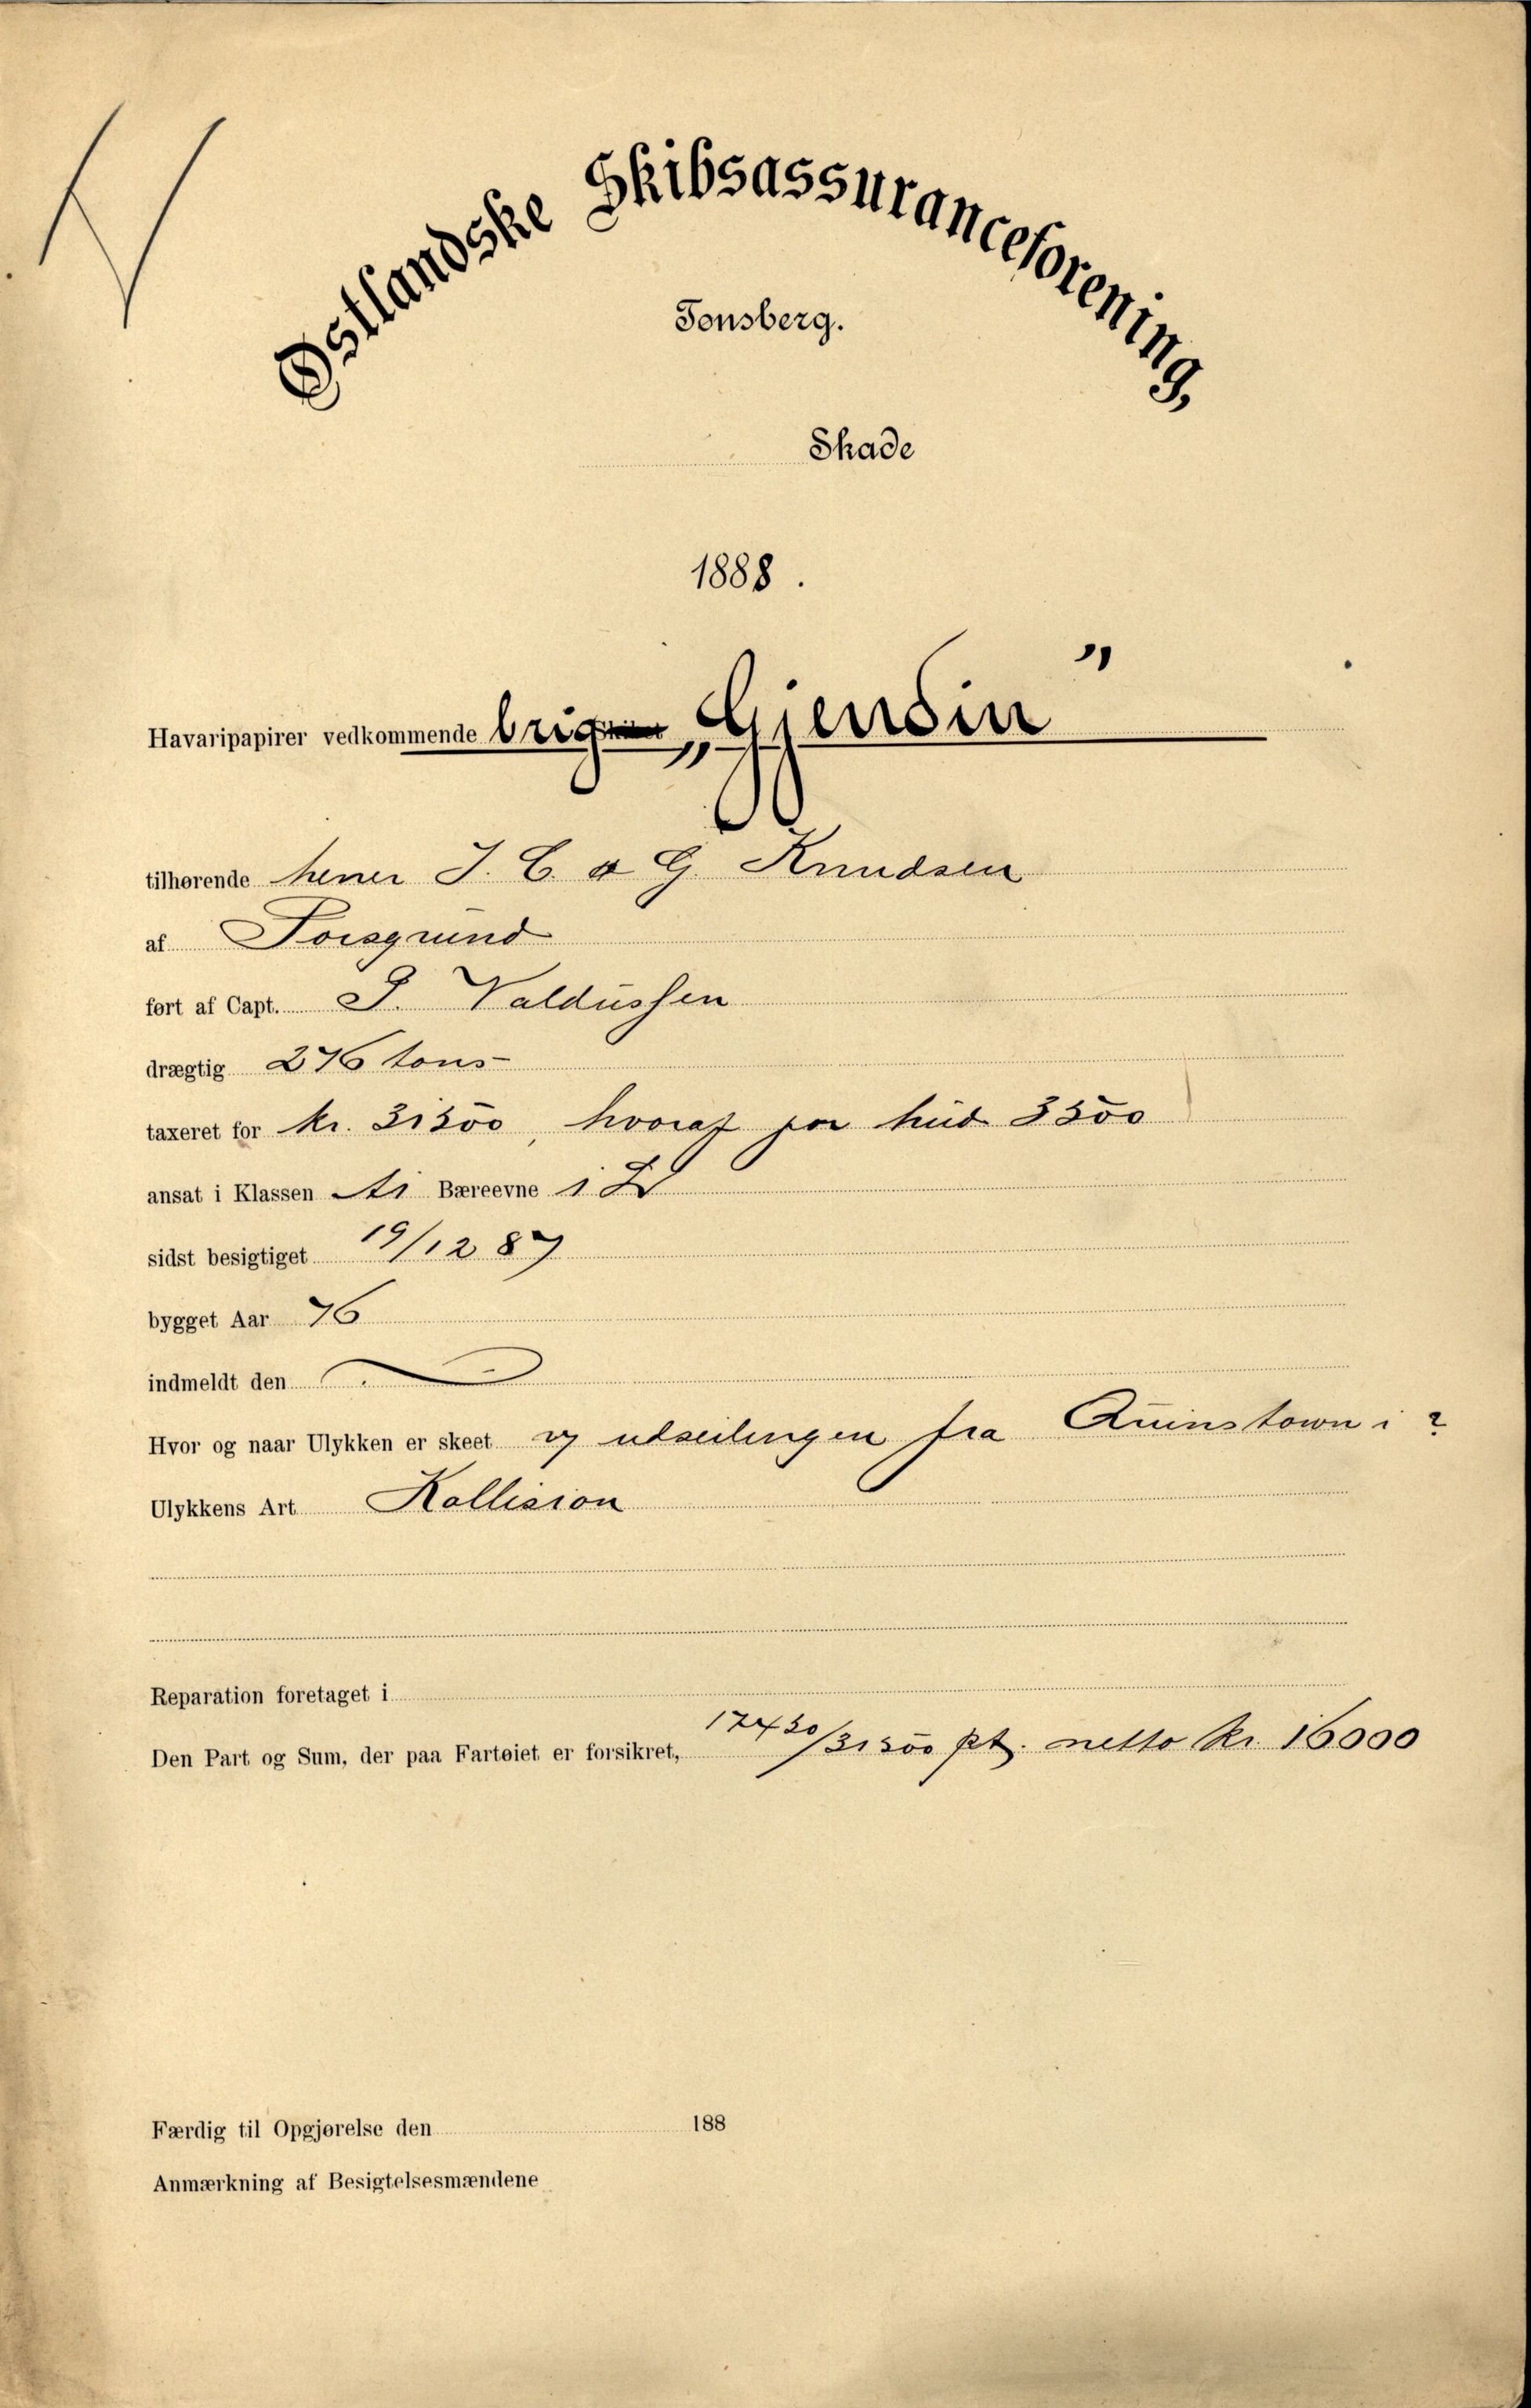 Østlandske Skibsassuranceforening,
Tønsberg.
Skade
1888.
Havaripapirer vedkommende brig „Gjendin"
tilhørende herrer J. C. & G. Knudsen
af Porsgrund
ført af Capt. J. Valdussen
drægtig 276 tons
taxeret for kr. 31500, hvoraf for hud 3500
ansat i Klassen A1 Bæreevne 1
sidst besigtiget 19/12 87
bygget Aar 76
indmeldt den
Hvor og naar Ulykken er skeet v utseilingen fra Quinstown i ?
Ulykkens Art Kollision
Reparation foretaget i
Den Part og Sum, der paa Fartøiet er forsikret, /31500 pt. netto kr 16000
Færdig til Opgjørelse den 188
Anmærkning af Besigtelsesmændene